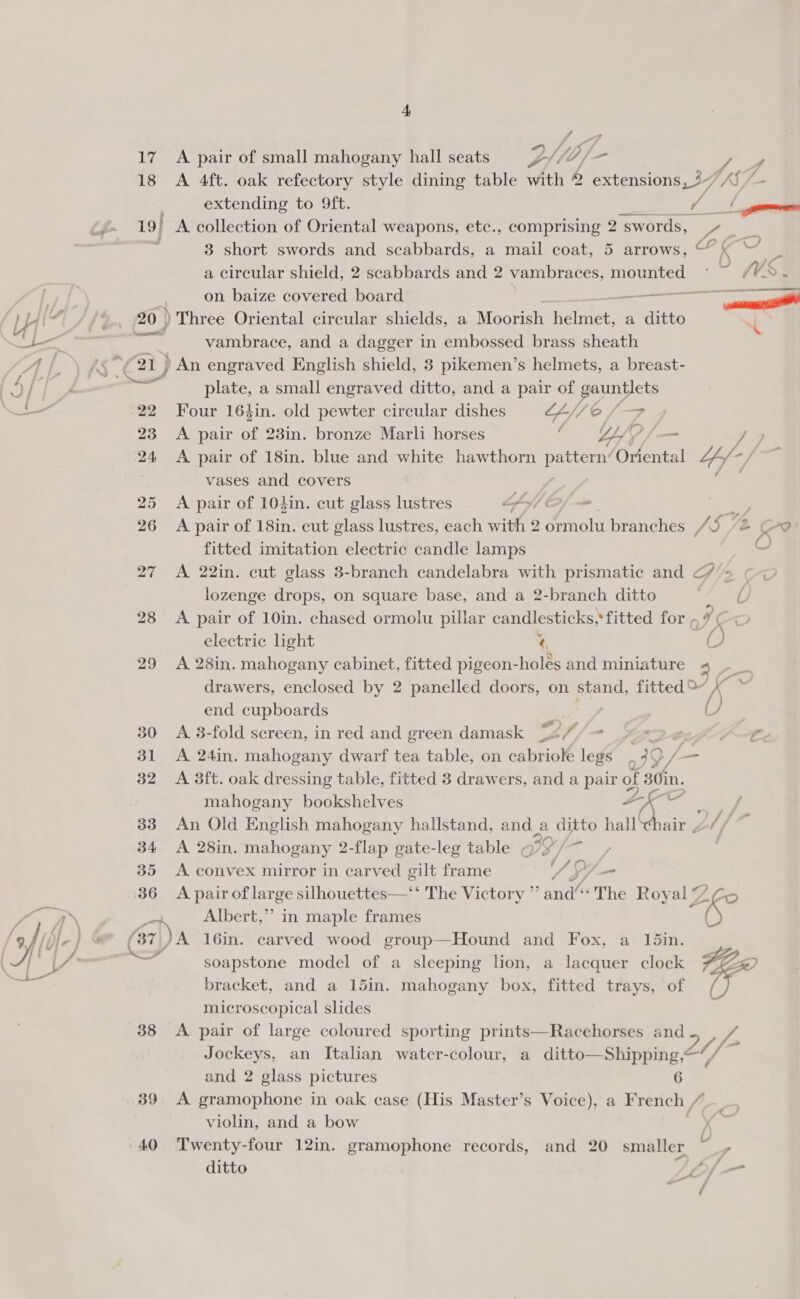 4
17 A pair of small mahogany hall seats
18 A 4ft. oak refectory style dining table with 2 extensions,
extending to 9ft.
19 A collection of Oriental weapons, etc., comprising 2 swords,
3 short swords and scabbards, a mail coat, 5 arrows,
a circular shield, 2 scabbards and 2 vambraces, mounted
on baize covered board
20 Three Oriental circular shields, a Moorish helmet, a ditto
vambrace, and a dagger in embossed brass sheath
21 An engraved English shield, 3 pikemen's helmets, a breast-
plate, a small engraved ditto, and a pair of gauntlets
22 Four 16½in. old pewter circular dishes
23 A pair of 23in. bronze Marli horses
24 A pair of 18in. blue and white hawthorn pattern Oriental
vases and covers
25 A pair of 10½in. cut glass lustres
26 A pair of 18in. cut glass lustres, each with 2 ormolu branches
fitted imitation electric candle lamps
27 A 22in. cut glass 3-branch candelabra with prismatic and
lozenge drops, on square base, and a 2-branch ditto
28 A pair of 10in. chased ormolu pillar candlesticks, fitted for
electric light
29 A 28in. mahogany cabinet, fitted pigeon-holes and miniature
drawers, enclosed by 2 panelled doors, on stand, fitted
end cupboards
30 A 3-fold screen, in red and green damask
31 A 24in. mahogany dwarf tea table, on cabriole legs
32 A 3ft. oak dressing table, fitted 3 drawers, and a pair of 30in.
mahogany bookshelves
33 An Old English mahogany hallstand, and a ditto hall chair
34 A 28in. mahogany 2-flap gate-leg table
35 A convex mirror in carved gilt frame
36 A pair of large silhouettes—"The Victory" and "The Royal
Albert," in maple frames
37 A 16in. carved wood group—Hound and Fox, a 15in.
soapstone model of a sleeping lion, a lacquer clock
bracket, and a 15in. mahogany box, fitted trays, of
microscopical slides
38 A pair of large coloured sporting prints—Racehorses and
Jockeys, an Italian water-colour, a ditto—Shipping,
and 2 glass pictures 6
39 A gramophone in oak case (His Master's Voice), a French
violin, and a bow
40 Twenty-four 12in. gramophone records, and 20 smaller
ditto